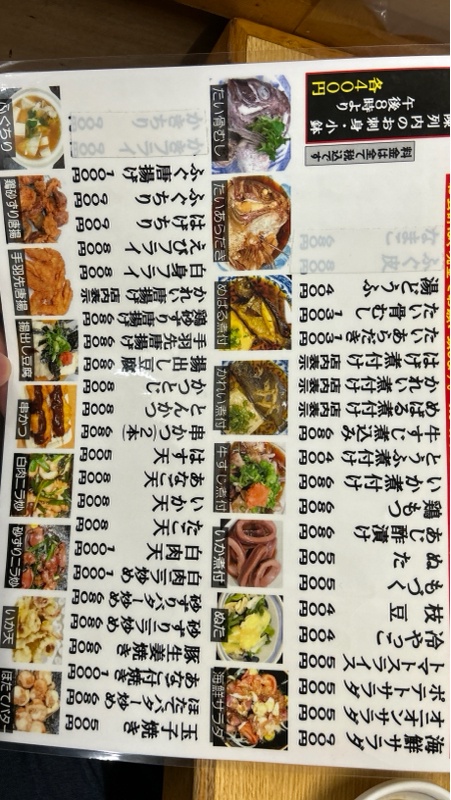 陳列内のお刺身・小鉢
午後8時より
各400円
料金は全て税込です
なまこ
ふぐ皮
湯どうふ 400円
たい骨むし
たいあらだき
はげ煮付け 店内表示
かれい煮付け 店内表示
めばる煮付け 店内表示
牛すじ煮込み 680円
とうふ煮付け 400円
いか煮付け 680円
鶏もつ 680円
あじ酢漬け 680円
ぬた 500円
もづく 500円
枝豆 400円
冷やっこ 400円
トマトスライス 500円
ポテトサラダ 500円
オニオンサラダ 500円
海鮮サラダ 900円
たい骨むし
たいあらだき
めばる煮付
かれい煮付
牛すじ煮付
いか煮付
ぬた
海鮮サラダ
かきちり
かきフライ
ふぐ唐揚げ 1000円
ふぐちり
はげちり
えびフライ 800円
白身フライ 800円
かれい唐揚げ 店内表示
鶏砂ずり唐揚げ 680円
手羽先唐揚げ 680円
揚出し豆腐 680円
かつとじ 800円
とんかつ 800円
串かつ(2本) 680円
はす天 500円
あなご天 800円
いか天 800円
たこ天 800円
白肉天 1000円
白肉ニラ炒め 1000円
砂ずりバター炒め 680円
砂ずりニラ炒め 680円
豚生姜焼き 680円
あなご付焼き 1000円
ほたてバター炒め 680円
玉子焼き 500円
ふぐちり
鶏砂ずり唐揚
手羽先唐揚
揚出し豆腐
串かつ
白肉ニラ炒
砂ずりニラ炒
いか天
ほたてバター